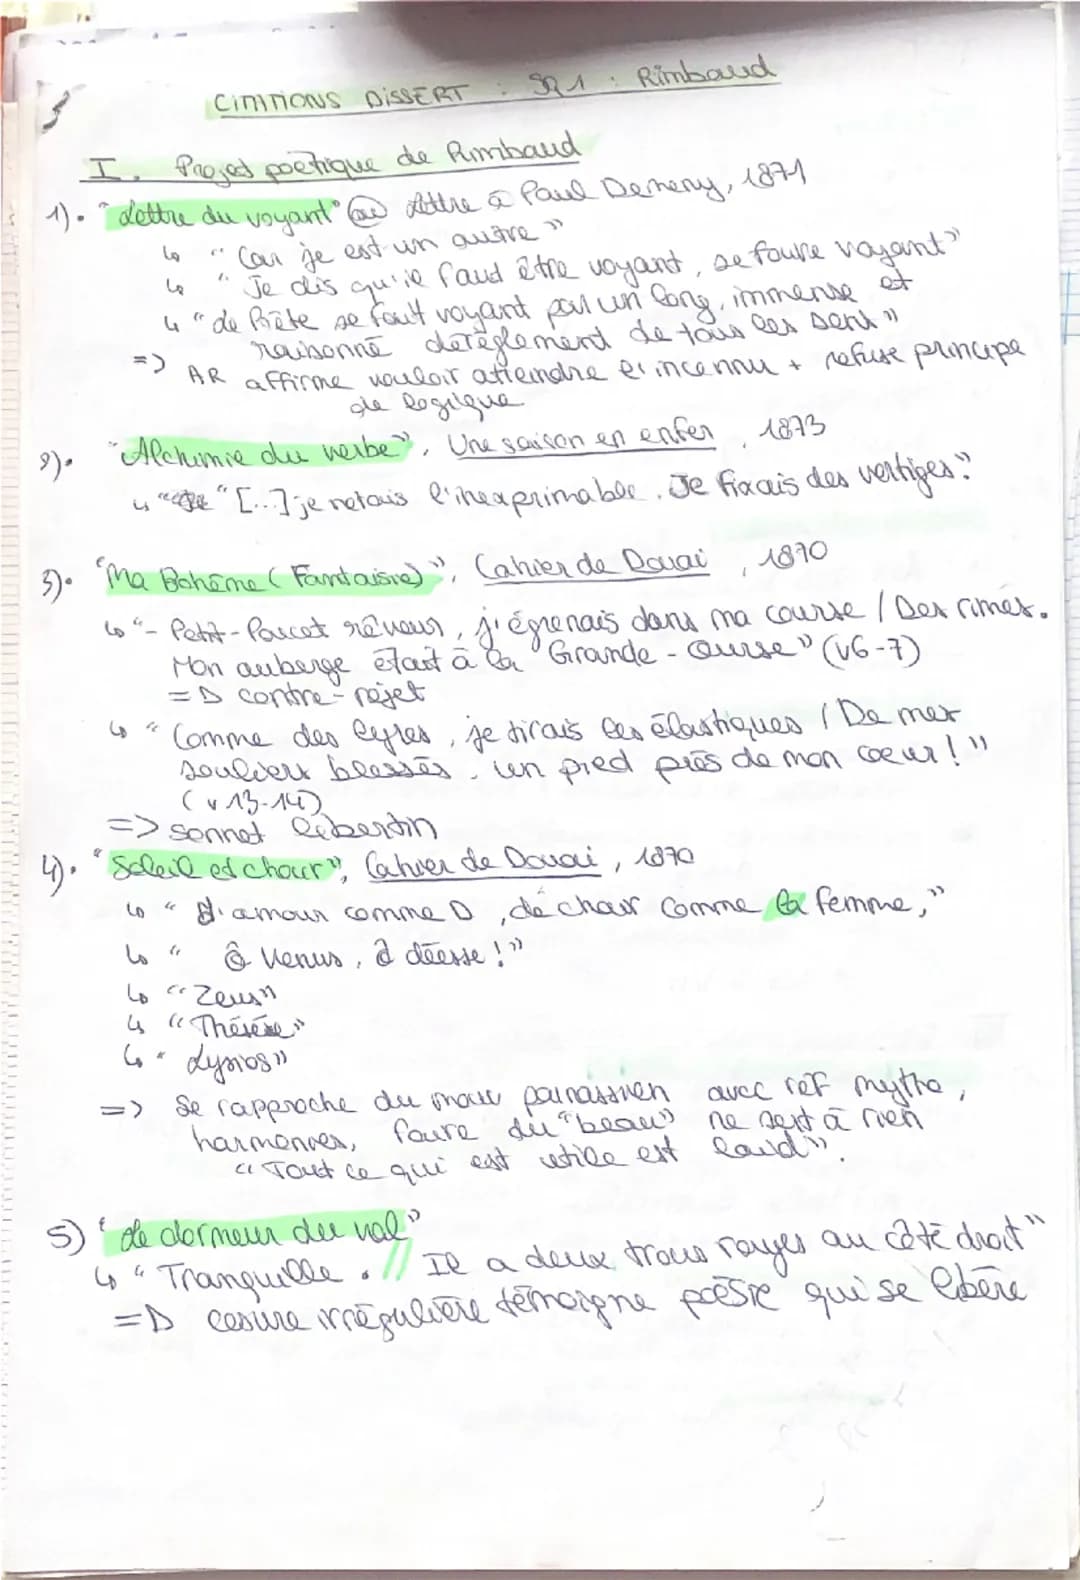 CITATIONS DISSERT : SQ1 : Rimbaud
I. Projet poétique de Rimbaud
1). "Lettre du voyant" ou Lettre à Paul Demeny, 1871
↳ "Car je est un autre"
↳ "Je dis qu'il faut être voyant, se faire voyant"
↳ "Le Poète se fait voyant par un long, immense et
raisonné dérèglement de tous les sens"
=> AR affirme vouloir atteindre l'inconnu + refuse principe
de logique
2). "Alchimie du verbe", Une saison en enfer, 1873
↳ "[...] je notais l'inexprimable. Je fixais des vertiges."
3). "Ma Bohême (Fantaisie)", Cahier de Douai, 1870
↳ "- Petit-Poucet rêveur, j'égrenais dans ma course / Des rimes.
Mon auberge était à la Grande-Ourse" (v6-7)
=> contre-rejet
↳ "Comme des lyres, je tirais les élastiques / De mes
souliers blessés, un pied près de mon coeur!"
(v 13-14)
=> sonnet libertin
4). "Soleil et chair", Cahier de Douai, 1870
↳ "D'amour comme D, de chair comme la femme,"
↳ "Ô Vénus, ô déesse!"
↳ "Zeus"
↳ "Thésée"
↳ "Lysios"
=> Se rapproche du mouv parnassien avec réf mytho,
harmonies, faire du "beau" ne sert à rien
"Tout ce qui est utile est laid".
5) "Le dormeur du val"
↳ "Tranquille. // Il a deux trous rouges au côté droit"
=> césure irrégulière témoigne poésie qui se libère